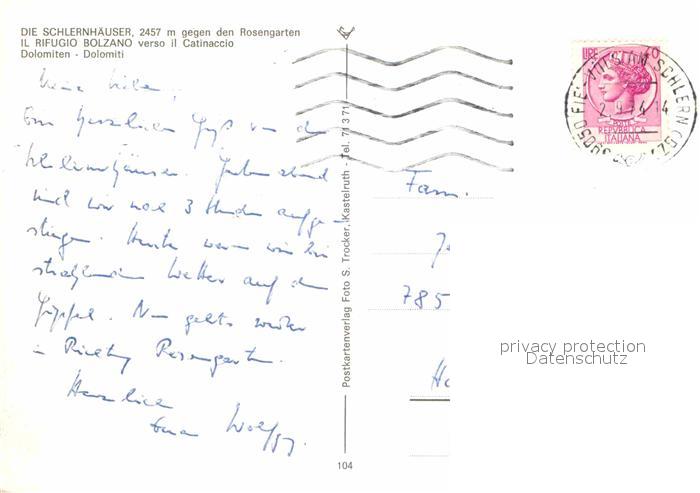 DIE SCHLERNHÄUSER, 2457 m gegen den Rosengarten
IL RIFUGIO BOLZANO verso il Catinaccio
Dolomiten - Dolomiti
Meine Lieben,
Ein herzlicher Gruß von den
Schlernhäusern. Gestern abend
sind wir noch 3 Stunden aufge-
stiegen. Heute waren wir bei
strahlendem Wetter auf dem
Gipfel. Nun geht's weiter
in Richtung Rosengarten.
Herzlich
Wolfgg.
Postkartenverlag Foto S. Trocker, Kastelruth - Tel. 71371
104
LIRE
POSTE
REPVBBLICA
ITALIANA
39050 FIE AM SCHLERN (BZ)
2.9.74.14
Fam.
785
privacy protection
Datenschutz